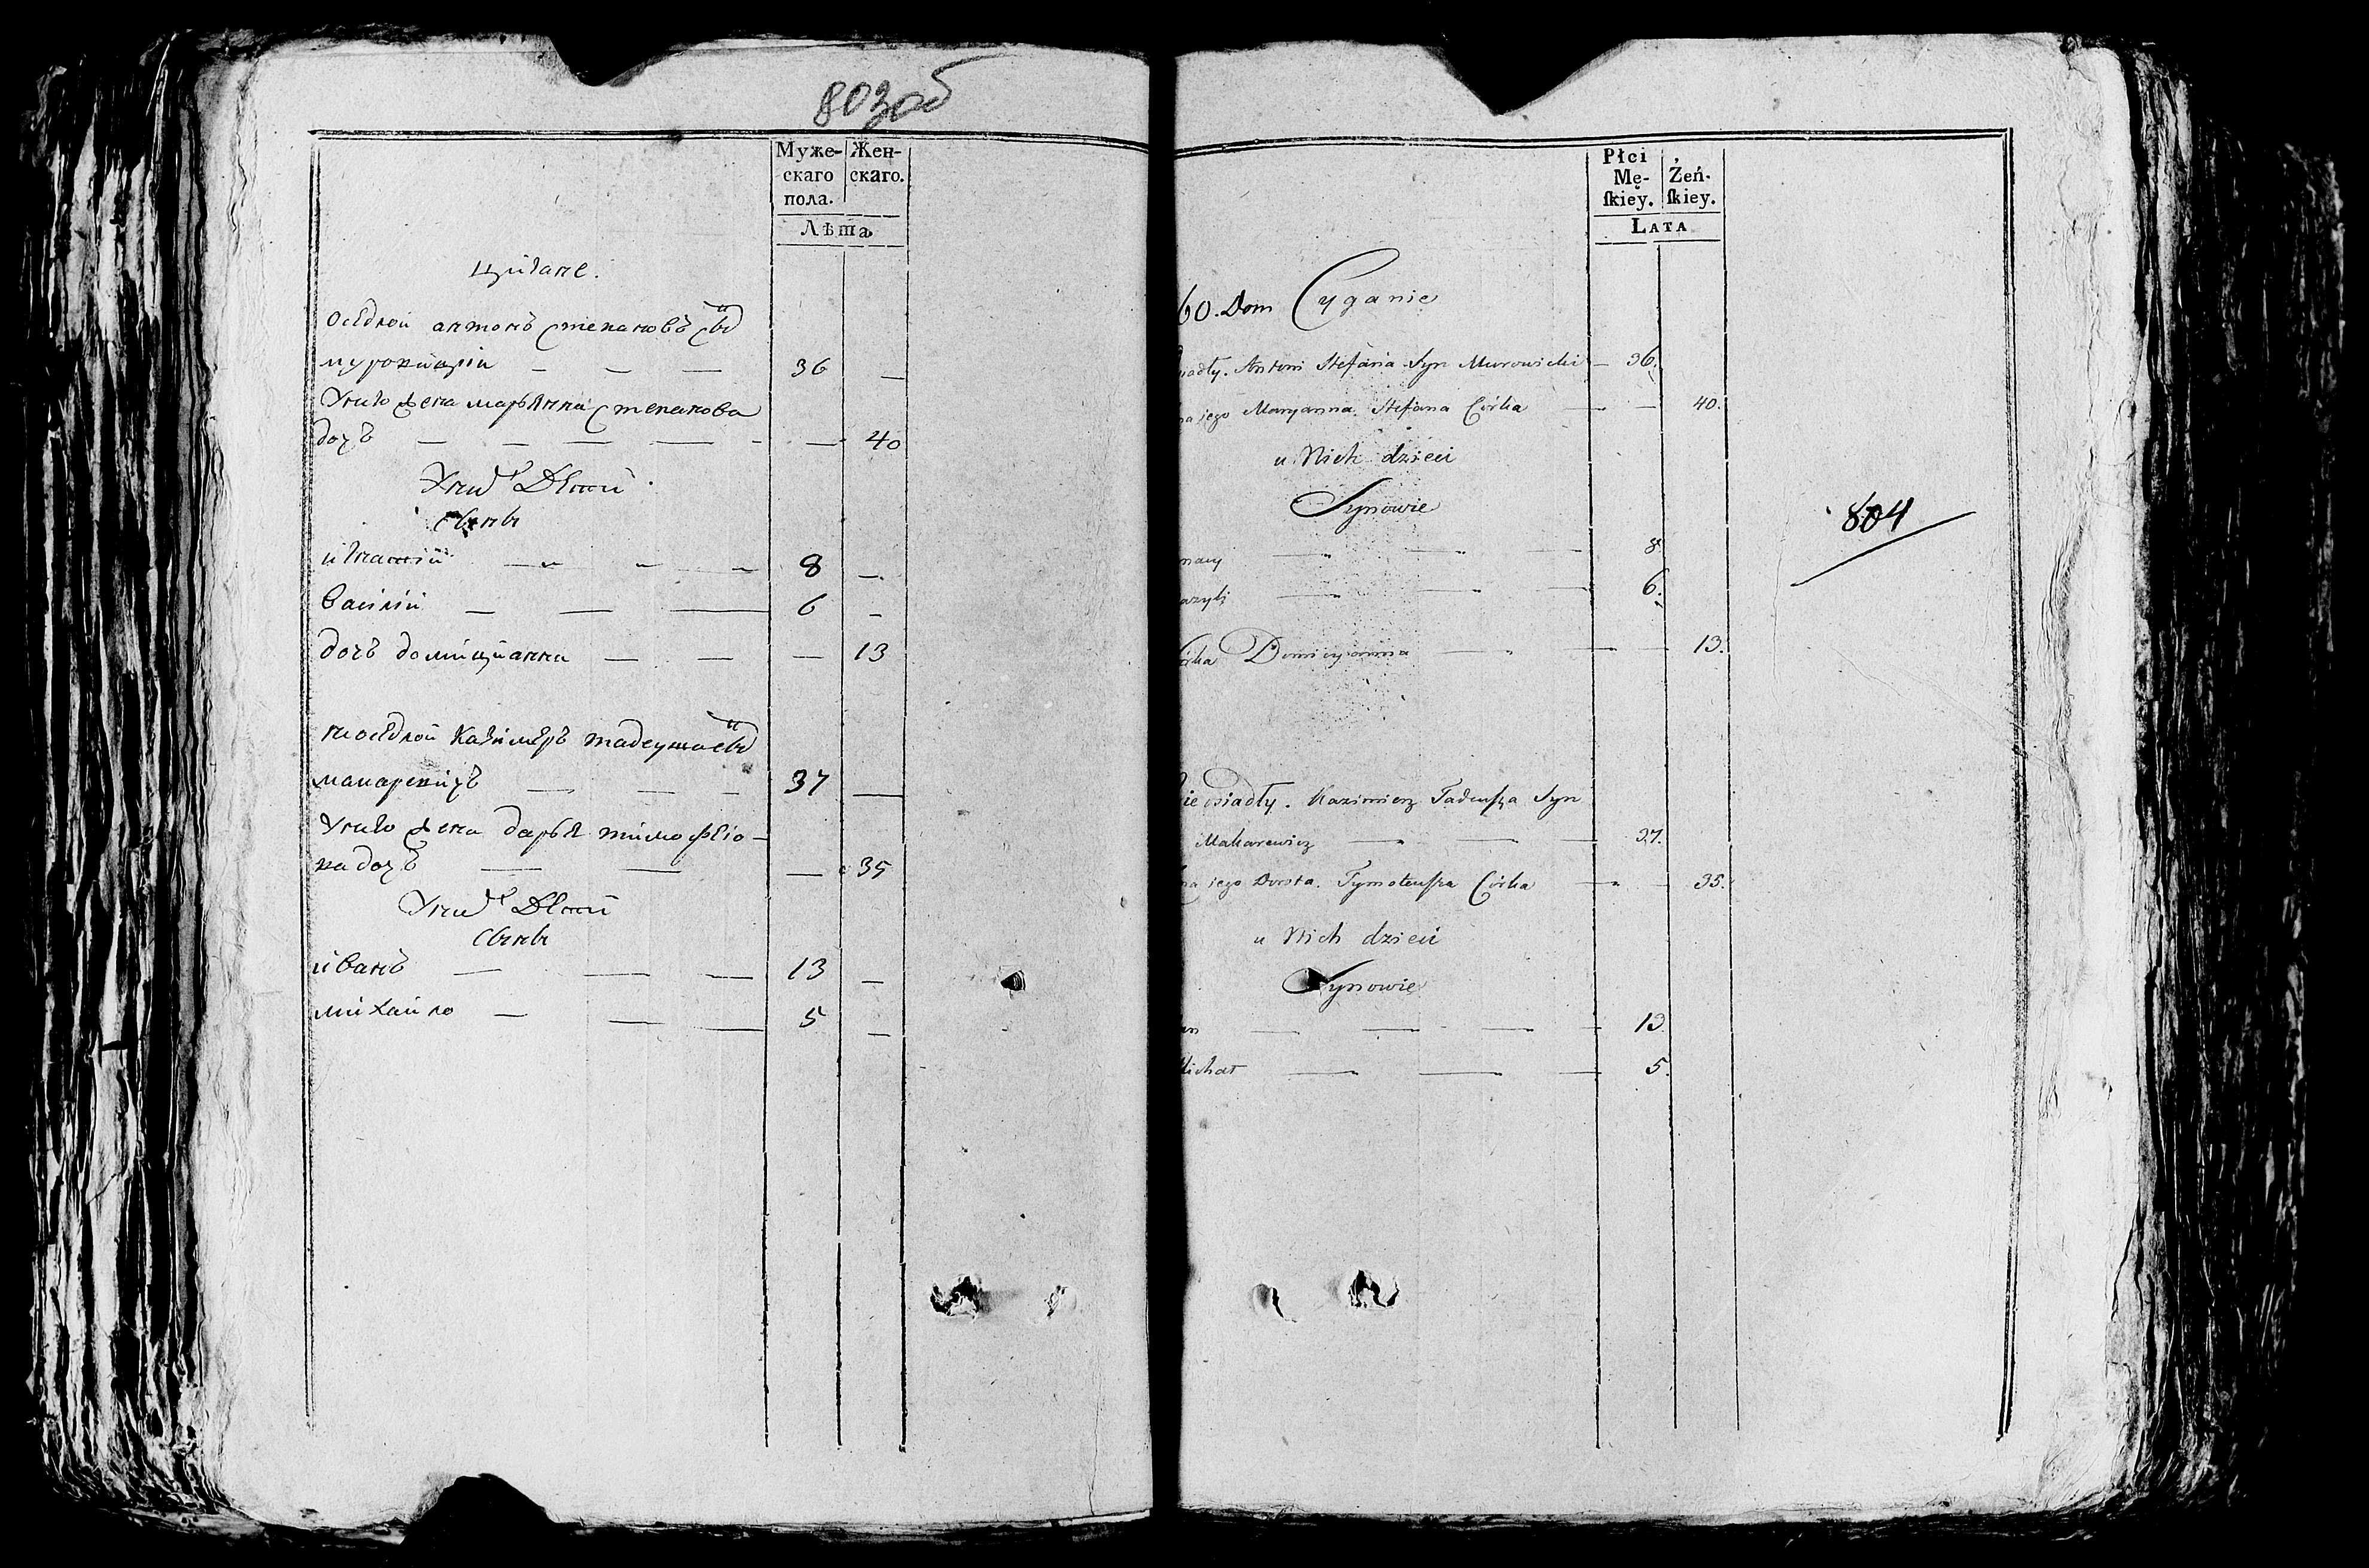 803об
Муже-
скаго
пола.
Жен-
скаго.
Лѣта
Цигане.
оседлой антонъ Степановъ сынъ
муровицкiй — — — 36 —
Унего жена марьянна Степанова
дочъ — — — — — 40
Унихъ Дѣти
Сыны
игнатiй — — — 8 —
Василiй — — — 6 —
дочъ домицианна — — — 13
неоседлой Казимеръ тадеушаевъ
макаревичъ — — — 37 —
Унего жена дарья тимофеiо-
ва дочъ — — — 35
Унихъ Дѣти
Сыны
иванъ — — — 13 —
михайло — — — 5 —
Płci
Mę-
ſkiey.
Żeń-
ſkiey.
LATA
60. Dom Cyganie
iadły. Antoni Stefana Syn Murowicki — 36.
na jego Maryanna. Stefana Córka — — 40.
u Nich dzieci
Synowie
nacy — — — 8
azyli — — — 6.
órka Domicyanna — — — 13.
804
Nie osiadły. Kazimierz Tadeuſza Syn
Makarewicz — — — 37.
na jego Dorota. Tymoteuſza Córka — — 35.
u Nich dzieci
Synowie
an — — — — 13
Michał — — — 5.